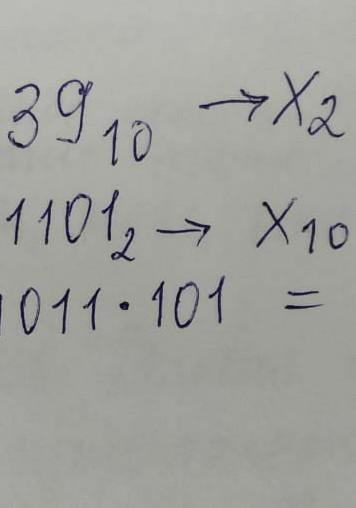 39₁₀ → X₂
1101₂ → X₁₀
1011 · 101 =